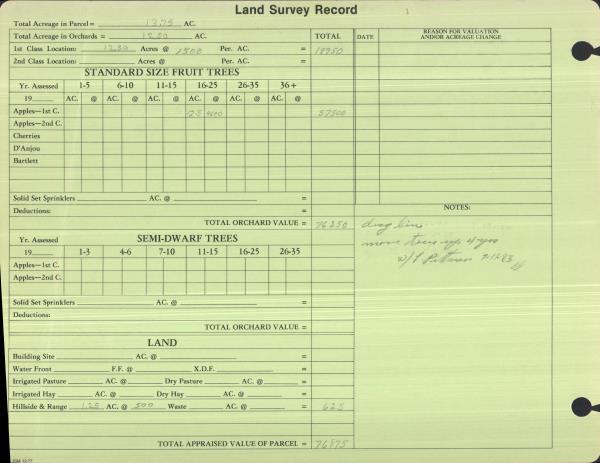 Land Survey Record 1
Total Acreage in Parcel = 13.75 AC.
Total Acreage in Orchards = 12.50 AC. TOTAL DATE REASON FOR VALUATION AND/OR ACREAGE CHANGE
1st Class Location: 12.50 Acres @ 1500 Per. AC. = 18750
2nd Class Location: Acres @ Per. AC. =
STANDARD SIZE FRUIT TREES
Yr. Assessed 1-5 6-10 11-15 16-25 26-35 36+
19 AC. @ AC. @ AC. @ AC. @ AC. @ AC. @
Apples—1st C. 12.5 4600 57500
Apples—2nd C.
Cherries
D'Anjou
Bartlett
Solid Set Sprinklers AC. @ =
Deductions: = NOTES:
TOTAL ORCHARD VALUE = 76250 drag line
SEMI-DWARF TREES move trees up 4 yrs
Yr. Assessed w/ 9-11-83
19 1-3 4-6 7-10 11-15 16-25 26-35
Apples—1st C.
Apples—2nd C.
Solid Set Sprinklers AC. @ =
Deductions: =
TOTAL ORCHARD VALUE =
LAND
Building Site AC. @ =
Water Front F.F. @ X.D.F. =
Irrigated Pasture AC. @ Dry Pasture AC. @ =
Irrigated Hay AC. @ Dry Hay AC. @ =
Hillside & Range 1.25 AC. @ 500 Waste AC. @ = 625
TOTAL APPRAISED VALUE OF PARCEL = 76875